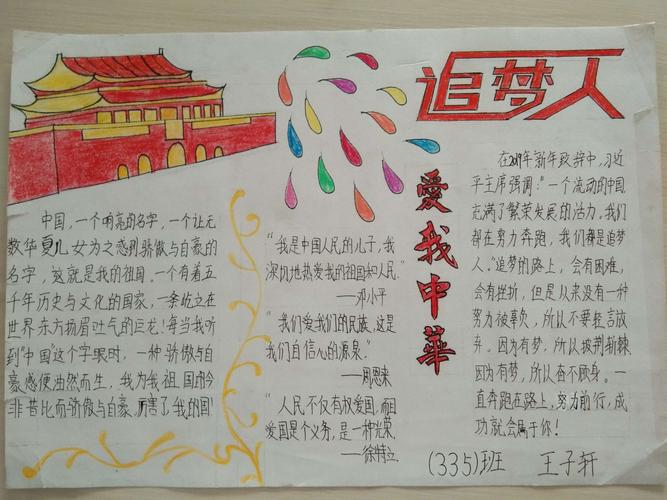 追梦人
爱我中華
中国，一个响亮的名字，一个让无
数华夏儿女为之感到骄傲与自豪的
名字，这就是我的祖国。一个有着五
千年历史与文化的国家，一条屹立在
世界东方扬眉吐气的巨龙！每当我听
到"中国"这个字眼时，一种骄傲与自
豪感便油然而生，我为我祖国的今
非昔比而骄傲与自豪，厉害了，我的国
"我是中国人民的儿子，我
深切地热爱我的祖国和人民。"
——邓小平
"我们爱我们的民族，这是
我们自信心的源泉。"
——周恩来
"人民不仅有权爱国，而且
爱国是个义务，是一种光荣。
——徐特立
在2019年新年致辞中，习近
平主席强调："一个流动的中国
充满了繁荣发展的活力。我们
都在努力奔跑，我们都是追梦
人。"追梦的路上，会有困难，
会有挫折，但是从来没有一种
努力被辜负，所以不要轻言放
弃。因为有梦，所以披荆斩棘
因为有梦，所以奋不顾身。一
直奔跑在路上，努力前行，成
功就会属于你！
(335)班 王子轩